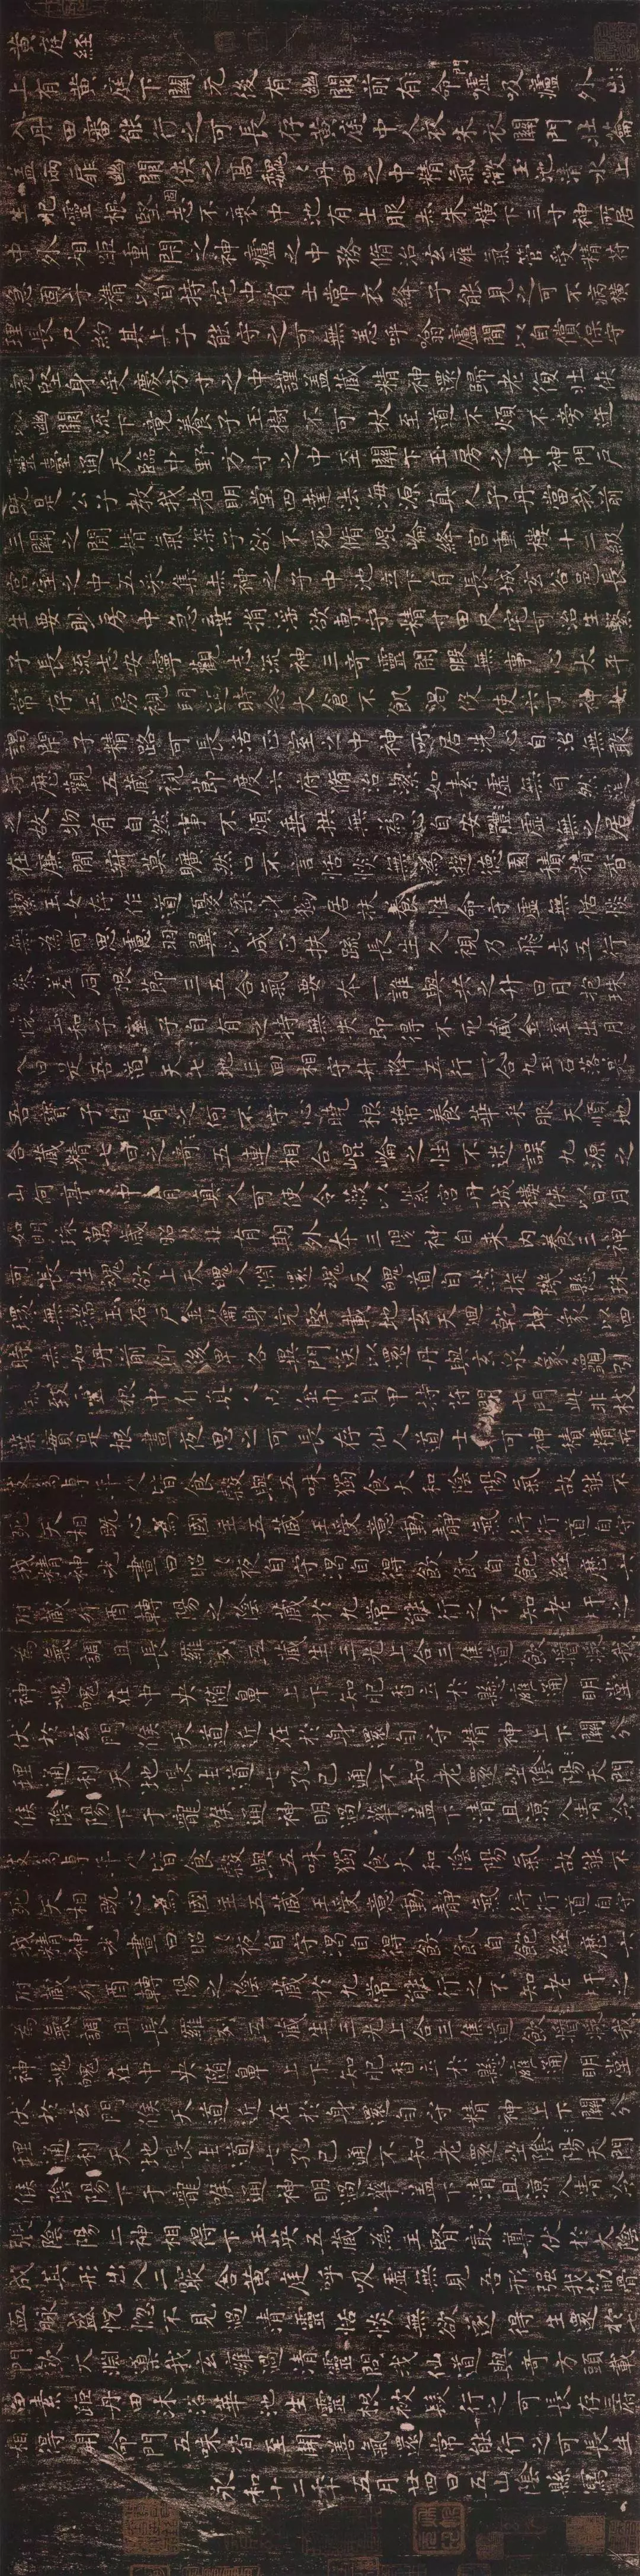 黄庭経
上有黄庭下關元後有幽闕前有命門噓吸廬外出
入丹田審能行之可長存黄庭中人衣朱衣關門壯籥
蓋兩扉幽闕俠之高巍〻丹田之中精氣微玉池清水上
生肥靈根堅志不衰中池有士服赤朱橫下三寸神所居
中外相距重閉之神廬之中務脩治玄膺氣管受精符
急固子精以自持宅中有士常衣絳子能見之可不病橫
理長尺約其上子能守之可無恙呼噏廬間以自償保守
完堅身受慶方寸之中謹蓋藏精神還歸老復壯俠
以幽闕流下竟養子玉樹不可杖至道不煩不旁迕
靈臺通天臨中野方寸之中至關下玉房之中神門戶
既是公子教我者明堂四達法海源真人子丹當我前
三關之間精氣深子欲不死脩崐崘絳宮重樓十二級
宮室之中五采集赤神之子中池立下有長城玄谷邑長
生要眇房中急棄捐淫欲專守精寸田尺宅可治生繫
子長流志安寧觀志流神三奇靈閑暇無事心太平
常存玉房視明達時念大倉不飢渴役使六丁神女
謁閉子精路可長活正室之中神所居洗心自治無敢
污歷觀五藏視節度六府脩治潔如素虛無自然道
之故物有自然事不煩垂拱無為心自安體虛無之居
在廉間寂莫曠然口不言恬惔無為遊德園積精香
潔玉女存作道憂柔身獨居扶養性命守虛無恬惔
無為何思慮羽翼以成正扶疏長生久視乃飛去五行
參差同根節三五合氣要本一誰與共之升日月抱珠
懷玉和子室子自有之持無失即得不死藏金室出月
入日是吾道天七地三回相守升降五行一合九玉石落落是
吾寶子自有之何不守心曉根蒂養華采服天順地
合藏精七日之奇五連相合崐崘之性不迷誤九源之
山何亭亭中有真人可使令蔽以紫宮丹城樓俠以日月
如明珠萬歲昭昭非有期外本三陽神自來內養三神
可長生魂欲上天魄入淵還魂反魄道自然旋璣懸珠
環無端玉石戶金籥身完堅載地玄天迴乾坤象以四
時赤如丹前仰後卑各異門送以還丹與玄泉象龜引
氣致靈根中有真人巾金巾負甲持符開七門此非枝
葉實是根晝夜思之可長存仙人道士非可神積精所
致為專年人皆食穀與五味獨食太和陰陽氣故能不
死天相既心為國主五藏王受意動靜氣得行道自守
我精神光晝日昭〻夜自守渴自得飲飢自飽經歷六
府藏卯酉轉陽之陰藏於九常能行之不知老肝之
為氣調且長羅列五藏生三光上合三焦道飲漿我
神魂魄在中央隨鼻上下知肥香立於懸膺通明堂
伏於玄門候天道近在於身還自守精神上下關分
理通利天地長生道七孔已通不知老還坐陰陽天門
候陰陽下于龍喉通神明過華蓋下清且涼入清泠
致為專年人皆食穀與五味獨食太和陰陽氣故能不
死天相既心為國主五藏王受意動靜氣得行道自守
我精神光晝日昭〻夜自守渴自得飲飢自飽經歷六
府藏卯酉轉陽之陰藏於九常能行之不知老肝之
為氣調且長羅列五藏生三光上合三焦道飲漿我
神魂魄在中央隨鼻上下知肥香立於懸膺通明堂
伏於玄門候天道近在於身還自守精神上下關分
理通利天地長生道七孔已通不知老還坐陰陽天門
候陰陽下于龍喉通神明過華蓋下清且涼入清泠
陰陽二神相得下玉英五藏為主腎最尊伏於大陰
成其形出入二竅合黃庭呼吸虛無見吾形強我筋骨
血脈盛恍惚不見過清靈恬惔無欲遂得生還於
七門飲大淵導我玄膺過清靈問我仙道與奇方頭載
白素距丹田沐浴華池生靈根被髮行之可長存三府
相得開命門五味皆至開善氣還常能行之可長生
永和十二年五月廿四日五山陰縣寫